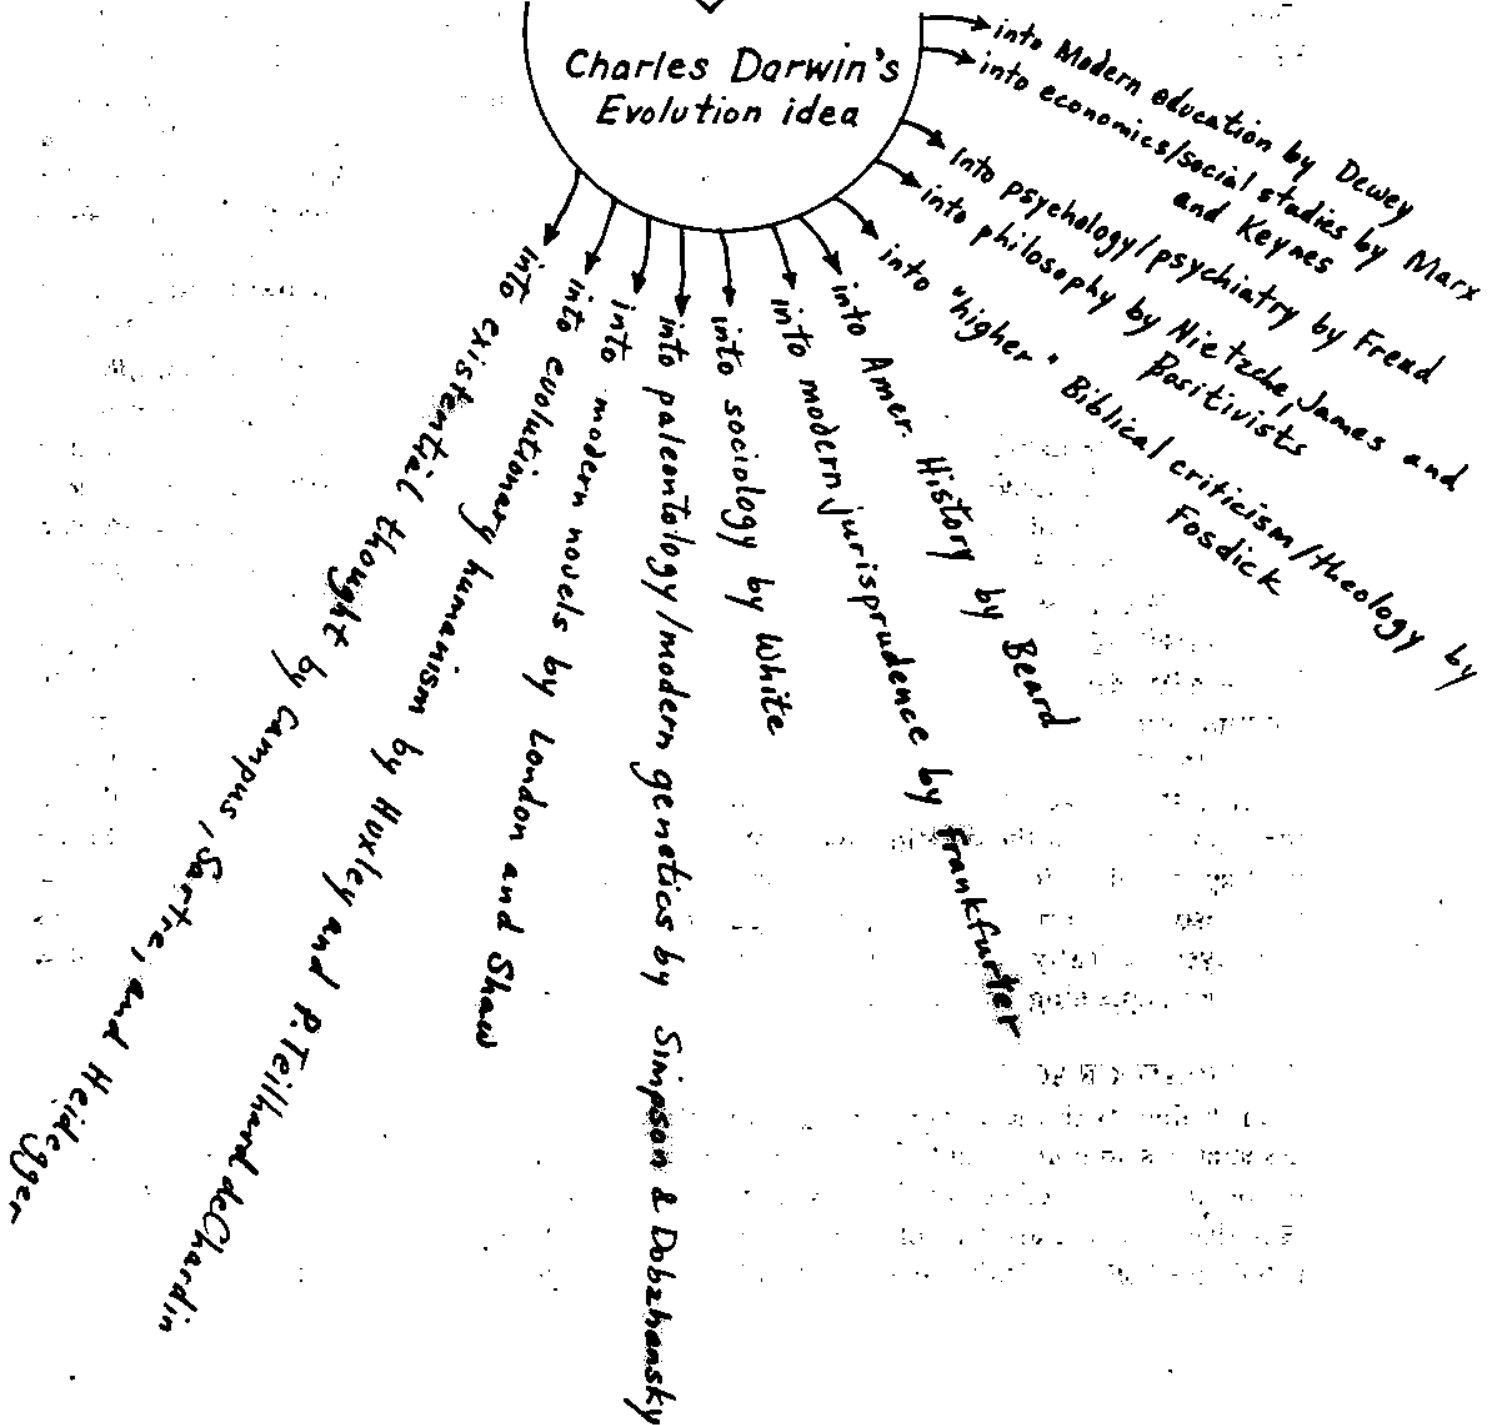 Charles Darwin's
Evolution idea
into Modern education by Dewey
into economics/social studies by Marx
and Keynes
into psychology/psychiatry by Freud
into philosophy by Nietzche, James and
Positivists
into "higher" Biblical criticism/theology by
Fosdick
into Amer. History by Beard
into modern jurisprudence by Frankfurter
into sociology by White
into paleontology/modern genetics by Simpson & Dobzhansky
into modern novels by London and Shaw
into evolutionary humanism by Huxley and P. Teilhard deChardin
into existential thought by Campus, Sartre, and Heidegger